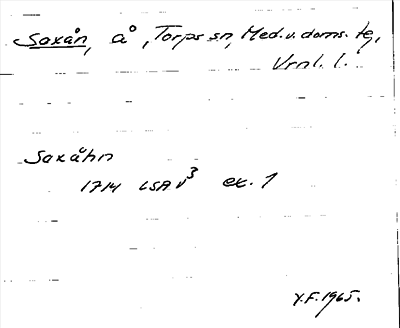 Saxån, å, Torps sn, Med. v. doms. tg,
Vrnl. l.
Saxåhn
1714 LSA V³ ex. 1
Y.F. 1965.